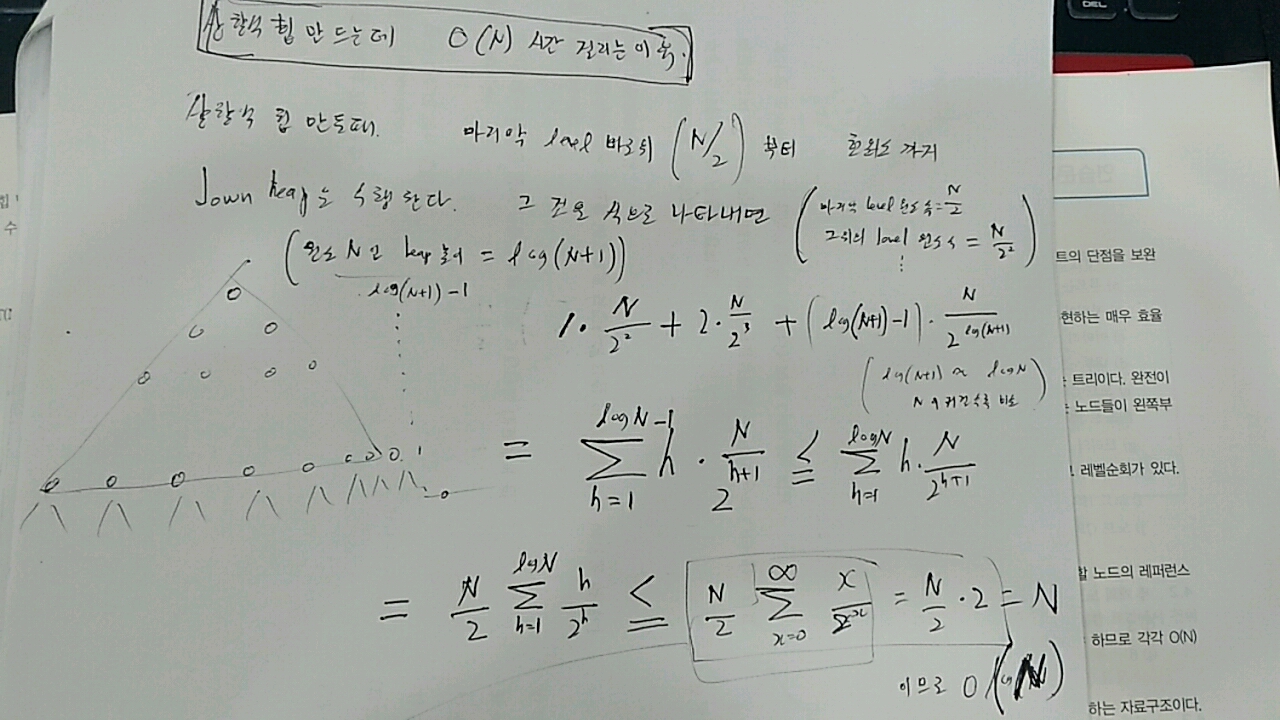 상향식 힙 만드는데 O(N) 시간 걸리는 이유.
상향식 힙 만들때. 마지막 level 바로위 (N/2) 부터 루트노드 까지
Down heap을 수행한다. 그 것을 식으로 나타내면 (마지막 level 원소 수 = N/2
그위의 level 원소 수 = N/2² ⋮)
(원소 N 인 heap 높이 = log(N+1))
log(N+1)-1
1 · N/2² + 2 · N/2³ + (log(N+1)-1) · N/2^log(N+1)
(log(N+1) ≈ logN
N이 커질수록 비슷)
= Σ_{h=1}^{logN-1} h · N/2^{h+1} ≤ Σ_{h=1}^{logN} h · N/2^{h+1}
= N/2 Σ_{h=1}^{logN} h/2^h ≤ N/2 Σ_{x=0}^{∞} x/2^x = N/2 · 2 = N
이므로 O(N)
DEL
힙
수
트의 단점을 보완
현하는 매우 효율
트리이다. 완전이
노드들이 왼쪽부
레벨순회가 있다.
할 노드의 레퍼런스
하므로 각각 O(N)
하는 자료구조이다.